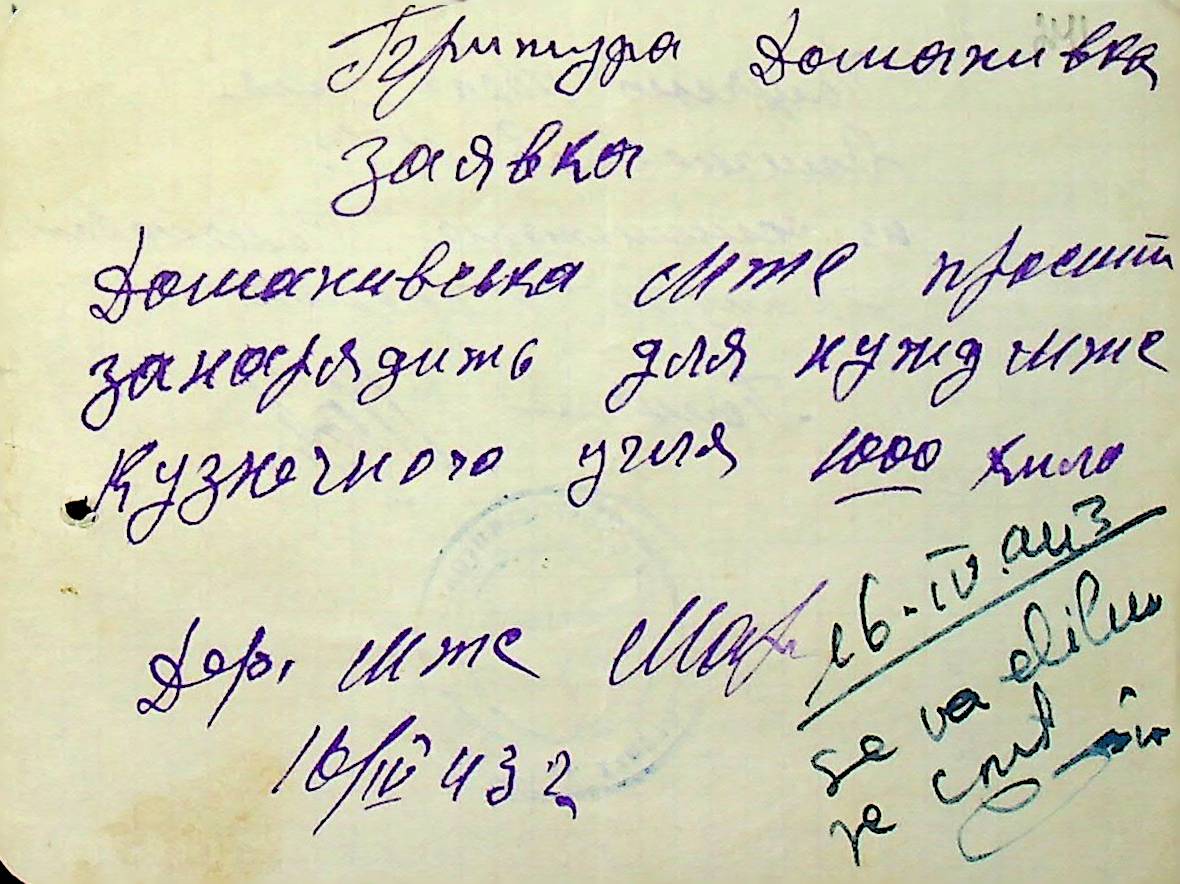 Притура Доманивка
Заявка
Доманивська мтс просит
занарядить для нужд мтс
Кузнечного угля 1000 кило
Дер. мтс
16/IV 43 г
16-IV.943
se va elibera
pe cont